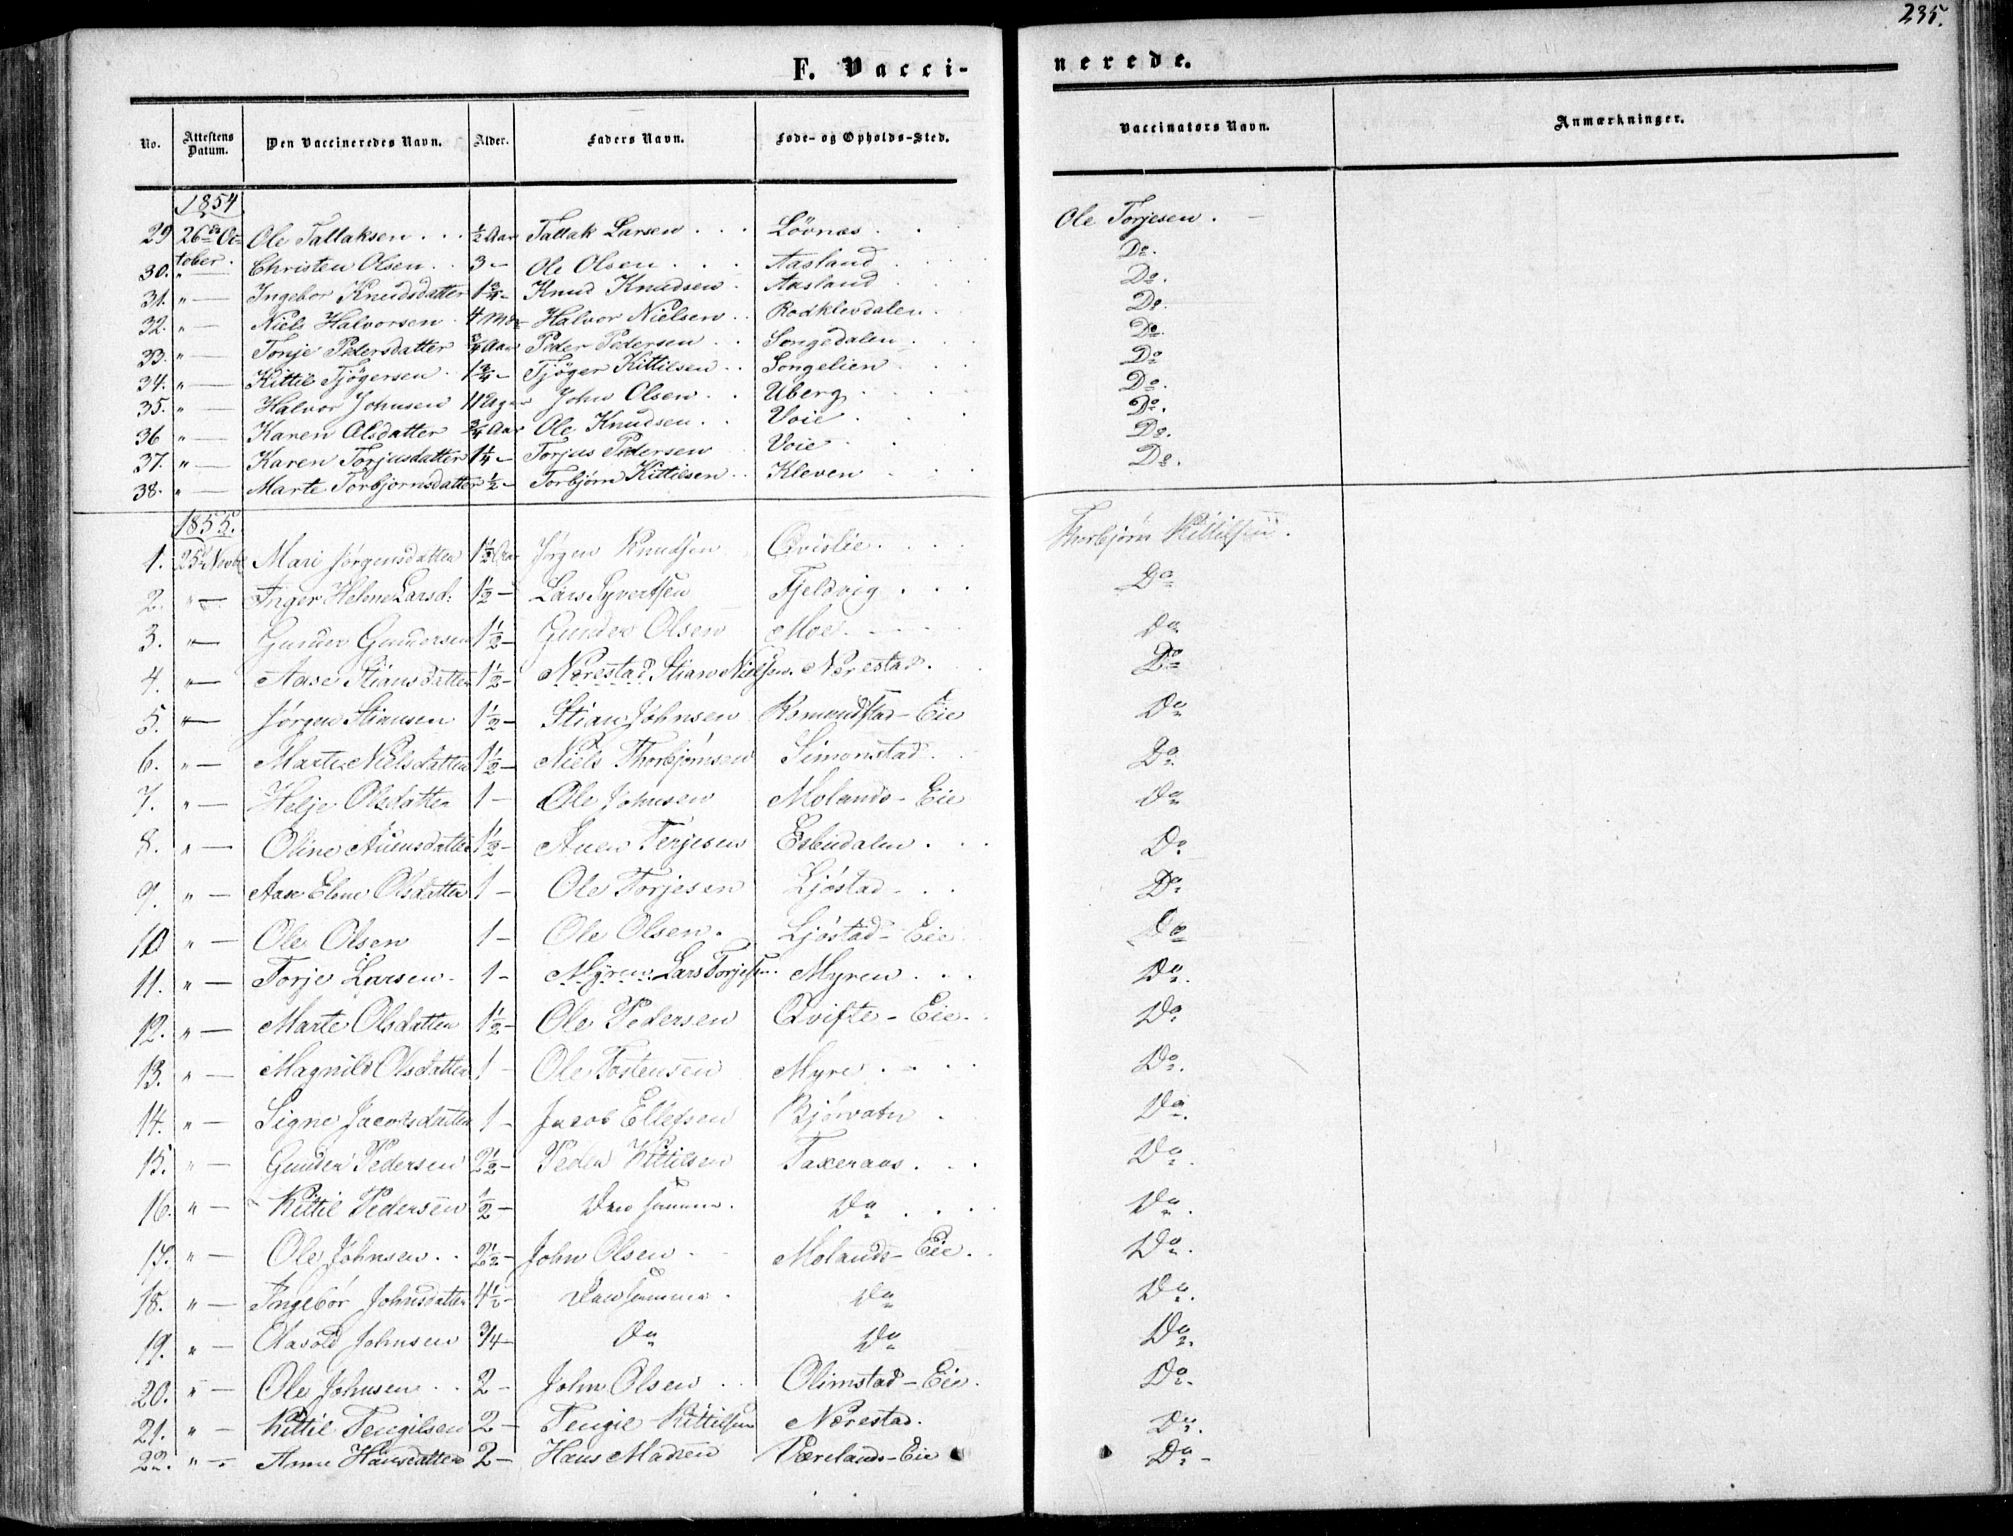 235.
F. Vacci-nerede.
No. Attestens Datum. Den Vaccineredes Navn. Alder. Faders Navn. Føde- og Opholds-Sted. Vaccinators Navn. Anmærkninger.
1854
29 26de Oc- Ole Tallaksen . . . ½ Aar Tallak Larsen . . . Lövnæs . . Ole Torjesen .
tober.
30. " — Christen Olsen . . 3 - Ole Olsen . . . Aasland . . Do.
31. " — Ingebor Knudsdatter 1¾ - Knud Knudsen . Aasland . . Do.
32. " — Niels Halvorsen . 4 Mdr Halvor Nielsen . . Rodklevdalen . Do.
33. " — Tonje Pedersdatter ¾ Aar Peder Pedersen . . Songedalen . Do.
34. " — Kittil Tjögersen . 1¾ - Tjöger Kittilsen . . Songelien . . Do
35. " — Halvor Johnsen 11 Uger John Olsen . . Uberg . . Do.
36 " — Karen Olsdatter ¾ Aar Ole Knudsen . . Voie . . Do.
37. " — Karen Torjusdatter 1¼ - Torjus Pedersen Voie . . Do.
38. " — Marte Torbjörnsdatter ½ - Torbjörn Kittilsen . . Kleven . . Do.
1855.
1. 25d Novbr Mari Jørgensdatter 1½ Aar Jørgen Knudsen Qvislie . . . Thorbjørn Kittilsen .
2. " — Inger Helene Larsd: 1½ - Lars Syvertsen Fjeldvig . . . Do
3. " — Gunder Gundersen 1½ - Gunder Olsen Moe . . . Do
4. " — Aase Stiansdatter 1½ - Nærestad Stian Nielsen. Nærestad . Do
5. " — Jørgen Stiansen 1½ - Stian Johnsen Osmundstad - Eie Do
6. " — Marte Nielsdatter 1½ - Niels Thorbjørnsen Simonstad . . Do
7. " — Helje Olsdatter 1 - Ole Johnsen Molands - Eie Do
8. " — Oline Auensdatter 1½ - Auen Terjesen Esbudalen . . . Do
9. " — Aase Elene Olsdatter 1 - Ole Torjesen Ljøstad . . . Do
10 " — Ole Olsen 1 - Ole Olsen . Ljøstad - Eie Do
11. " — Torje Larsen . 1 - Myren: Lars Torjesen . Myren . . . Do.
12. " — Marte Olsdatter 1½ - Ole Pedersen Qvifte - Eie . . Do
13. " — Magnild Olsdatter 1 - Ole Tostensen Myre . . . . Do.
14. " — Signe Jacobsdatter 1 - Jacob Ellefsen Bjørvatn . Do.
15. " — Gunder Pedersen 2½ - Peder Kittilsen Taxeraas . . . Do.
16. " — Kittil Pedersen ½ - Den samme . Do . . . . Do.
17. " — Ole Johnsen . . 2½ - John Olsen . . Molands - Eie . . Do.
18. " — Ingebor Johnsdatter 4½ - Den samme . Do Do.
19. " — Olavold Johnsen ¾ - Do Do Do.
20. " — Ole Johnsen . . 2 - John Olsen . . Olimstad - Eie . Do.
21. " — Kittil Tengilsen 2 - Tengil Kittilsen Nærestad . Do.
22. " — Anne Hansdatter 2 - Hans Madsen Værelands - Eie Do -